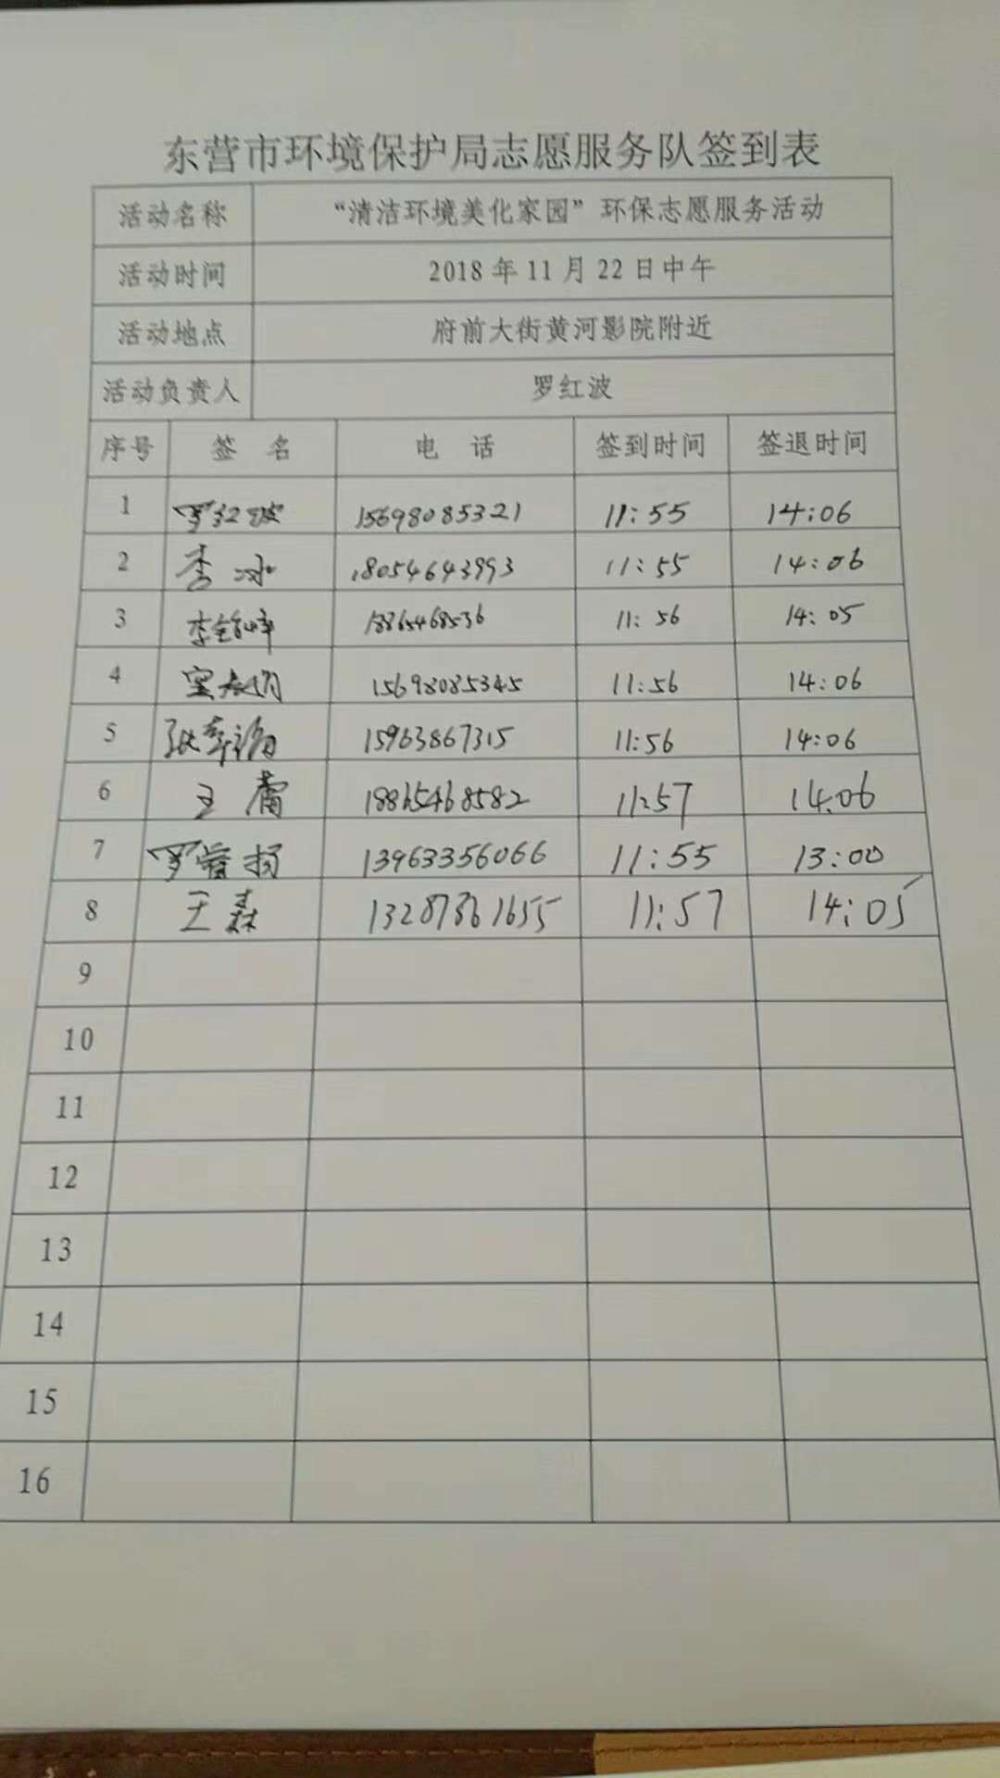 东营市环境保护局志愿服务队签到表
活动名称 “清洁环境美化家园”环保志愿服务活动
活动时间 2018年11月22日中午
活动地点 府前大街黄河影院附近
活动负责人 罗红波
序号 签 名 电 话 签到时间 签退时间
1 罗红波 15698085321 11:55 14:06
2 李冰 18054643993 11:55 14:06
3 11:56 14:05
4 15698085345 11:56 14:06
5 15963867315 11:56 14:06
6 王蕾 18865468582 11:57 14:06
7 13963356066 11:55 13:00
8 王森 11:57 14:05
9
10
11
12
13
14
15
16